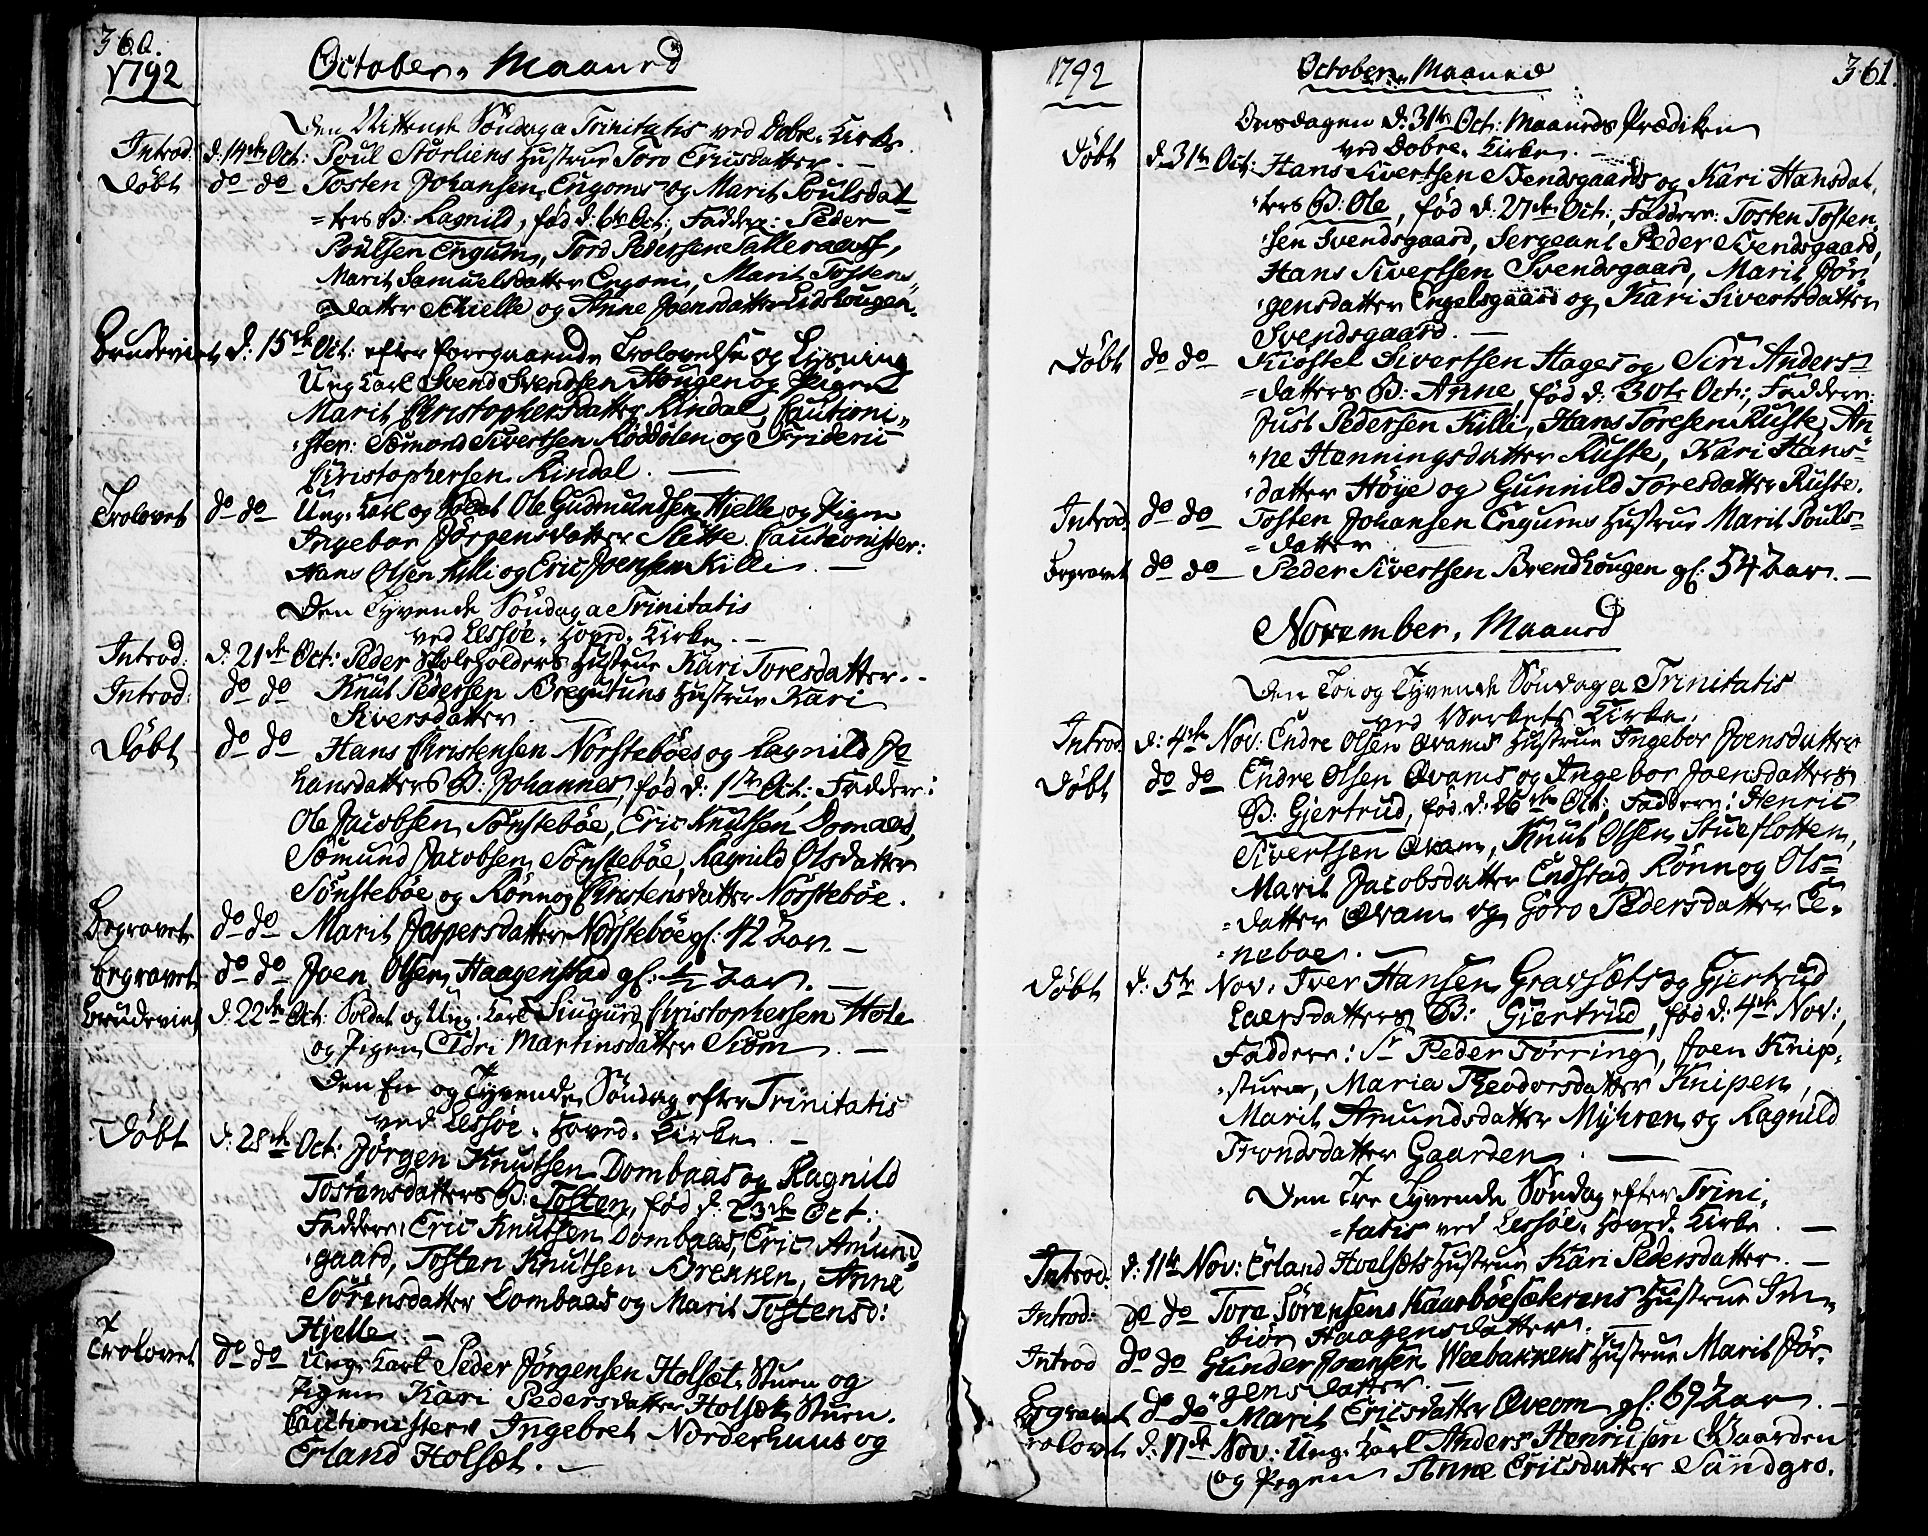 360.
1792 October, Maaned
Den Nittende Söndag a Trinitatis ved Dobre, Kirke.
Introd: d: 14de Oct: Poul Storliens Hustrue Toro Ericsdatter. —
Döbt do do Tosten Johansen Engoms og Marit Poulsdat=
=ters B: Ragnild, föd d: 6te Oct: Faddere: Peder
Poulsen Engum, Tord Pedersen Talleraass,
Marit Samuelsdatter Engom, Marit Tostens=
=datter Schielle og Anne Joensdatter Lidshougen.
Brudeviet d: 15de Oct: efter foregaaende Trolovelse og Lysning
Ung Karl Svend Svendsen Hougen og Pigen
Marit Christophersdatter Rindal, Cautioni=
=ster: Sömond Sivertsen Röddölen og Frideric
Christophersen Rindal. —
Trolovet do do Ung Karl og Soldat Ole Gudmundsen Hjelle og Pigen
Ingebor Jörgensdatter Slette. Cautionister:
Hans Olsen Killi og Eric Joensen Killi. —
Den Tyvende Söndag a Trinitatis
ved Lessöe, Hoved, Kirke. —
Introd: d: 21de Oct: Peder Skoleholders Hustrue Kari Toresdatter. -
Introd: do do Knut Pedersen Bregutuns Hustrue Kari
Siversdatter. —
Döbt do do Hans Christensen Nörsteböes og Ragnild Jo
hansdatters B: Johannes, föd d: 1ste Oct: Faddere:
Ole Jacobsen Sönsteböe, Eric Knutsen Domaas,
Sömund Jacobsen Sönsteböe, Ragnild Olsdatter
Sönsteböe og Rönnog Christensdatter Nörsteböe.
Begravet do do Marit Jospersdatter Nörsteböe gl: 42 Aar. —
Begravet do do Joen Olsen Haagenstad gl: 1/2 Aar. —
Brudeviet d: 22de Oct: Soldat og Ung Karl Siugurd Christophersen Hole
og Pigen Eldri Martinsdatter Skiöm. —
Den En og Tyvende Söndag efter Trinitatis
ved Lessöe, Hoved, Kirke. —
Döbt d: 28de Oct: Jörgen Knutsen Dombaas og Ragnild
Tostensdatters B: Tosten, föd d: 23de Oct:,
Faddere: Eric Knutsen Dombaas, Eric Amund=
=gaard, Tosten Knutsen Brekken, Anne
Sörensdatter Dombaas og Marit Tostensd:
Hjelle. —
Trolovet do do Ung Karl Peder Jörgensen Holsæt, Stuen og
Pigen Kari Pedersdatter Holsæt, Stuen.
Cautionister: Ingebret Norderhuus og
Erland Holsæt. —
1792 October, Maaned 361.
Onsdagen d: 31te Oct: Maaneds Prædiken
ved Dobre, Kirke. —
Döbt d: 31te Oct: Hans Sivertsen Svendsgaards og Kari Hansdat,
=ters B: Ole, föd d: 27de Oct:, Faddere: Tosten Tosten,
=sen Svendsgaard, Sergeant Peder Svendsgaard,
Hans Sivertsen Svendsgaard, Marit Jör,
=gensdatter Engelsgaard og Kari Sivertsdatter
Svendsgaard. —
Döbt do do Kiostel Sivertsen Hages og Siri Anders=
=datters B: Anne, föd d: 30te Oct:, Faddere:
Just Pedersen Killi, Hans Toresen Ruste, An
=ne Henningsdatter Ruste, Kari Hans=
=datter Höye og Gunnild Toresdatter Ruste.
Introd: do do Tosten Johansen Engums Hustrue Marit Pouls=
=datter. —
Begravet do do Peder Sivertsen Brendhougen gl: 54 Aar. —
November, Maaned
Den Toe og Tyvende Söndag a Trinitatis
ved Verkets Kirke.
Introd: d: 4de Nov: Endre Olsen Qvams Hustrue Ingebor Joensdatter
Döbt do do Endre Olsen Qvams og Ingebor Joensdatters
B: Gjertrud, föd d: 26de Oct:, Faddere: Henric
Sivertsen Qvam, Knut Olsen Stueflotten,
Marit Jacobsdatter Endstad, Rönnog Ols=
=datter Qvam og Goro Pedersdatter Te,
=neboe. —
Döbt d: 5te Nov: Iver Hansen Gravsæts og Gjertrud
Laersdatters B: Giertrud, föd d: 4de Nov:,
Faddere: Sr Peder Törring, Joen Knip,
=stuen, Maria Theodorsdatter Knipen,
Marit Amundsdatter Myhren og Ragnild
Trondsdatter Gaarden. —
Den Tre Tyvende Söndag efter Trini,
=tatis ved Lessöe, Hoved, Kirke. —
Introd: d: 11te Nov: Erland Hvolsæts Hustrue Kari Pedersdatter. —
Introd: do do Tore Sörensens Kaarböesæterens Hustrue Im,
biör Haagensdatter. —
Introd do do Gunder Joensen Weebakkens Hustrue Marit Jör,
=gensdatter. —
Begravet do do Marit Ericsdatter Qveom gl: 69 Aar. —
Trolovet d: 17de Nov: Ung Karl Anders Henricsen Gaarden
og Pigen Anne Ericsdatter Sandgro.